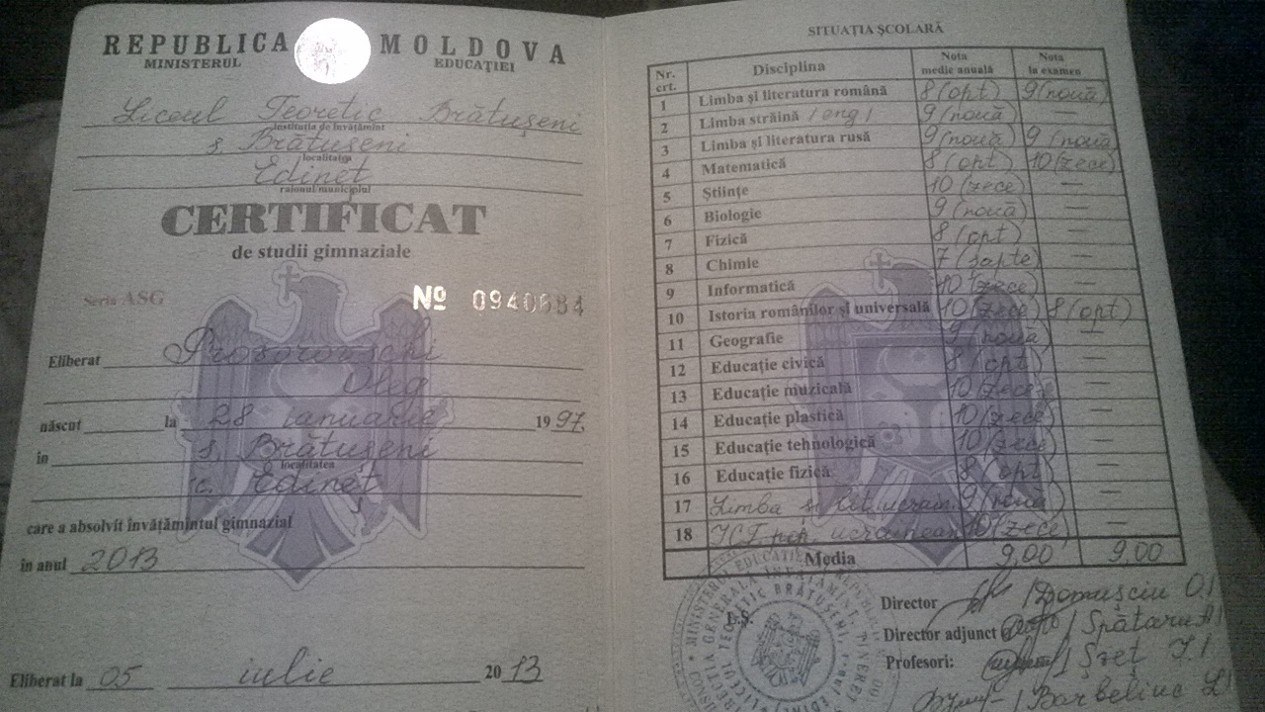 REPUBLICA MOLDOVA
MINISTERUL EDUCAŢIEI
Liceul Teoretic Brătuşeni
instituţia de învăţămînt
s. Brătuşeni
localitatea
Edineţ
raionul/municipiul
CERTIFICAT
de studii gimnaziale
Seria ASG № 0940684
Eliberat Prosorovschi
Oleg
născut la 28 ianuarie 1997
în s. Brătuşeni
localitatea
Edineţ
care a absolvit învăţămîntul gimnazial
în anul 2013
Eliberat la 05 iulie 2013
SITUAŢIA ŞCOLARĂ
Nr. crt. Disciplina Nota medie anuală Nota la examen
1 Limba şi literatura română 8 (opt) 9 (nouă)
2 Limba străină /eng/ 9 (nouă) —
3 Limba şi literatura rusă 9 (nouă) 9 (nouă)
4 Matematică 8 (opt) 10 (zece)
5 Ştiinţe 10 (zece) —
6 Biologie 9 (nouă) —
7 Fizică 8 (opt) —
8 Chimie 7 (şapte) —
9 Informatică 10 (zece) —
10 Istoria românilor şi universală 10 (zece) 8 (opt)
11 Geografie 9 (nouă) —
12 Educaţie civică 8 (opt) —
13 Educaţie muzicală 10 (zece) —
14 Educaţie plastică 10 (zece) —
15 Educaţie tehnologică 10 (zece) —
16 Educaţie fizică 8 (opt) —
17 Limba şi lit. ucrain. 9 (nouă) —
18 ICT pop. ucrainean 10 (zece) —
Media 9,00 9,00
L.Ş.
Director /Domuşciu O/
Director adjunct /Spătaru A/
Profesori: /Şreţ I/
/Barbeliuc L/